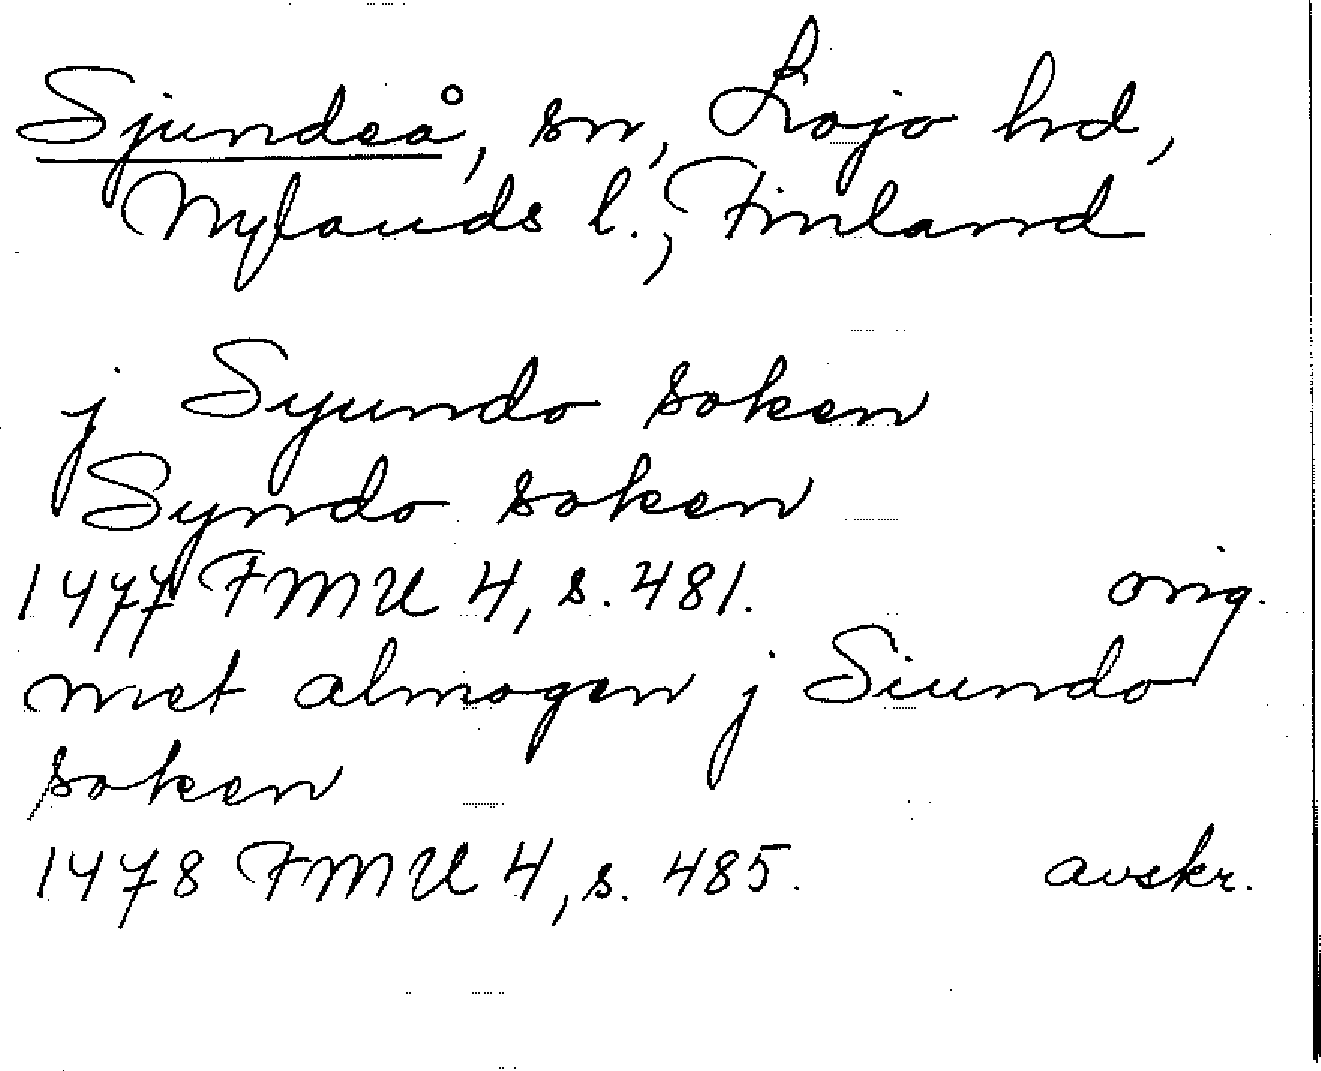 Sjundeå, sn, Lojo hd,
Nylands l., Finland
j Syundo soken
Syndo soken
1477 FMU 4, s. 481. orig.
met almogen j Siundo
soken
1478 FMU 4, s. 485. avskr.